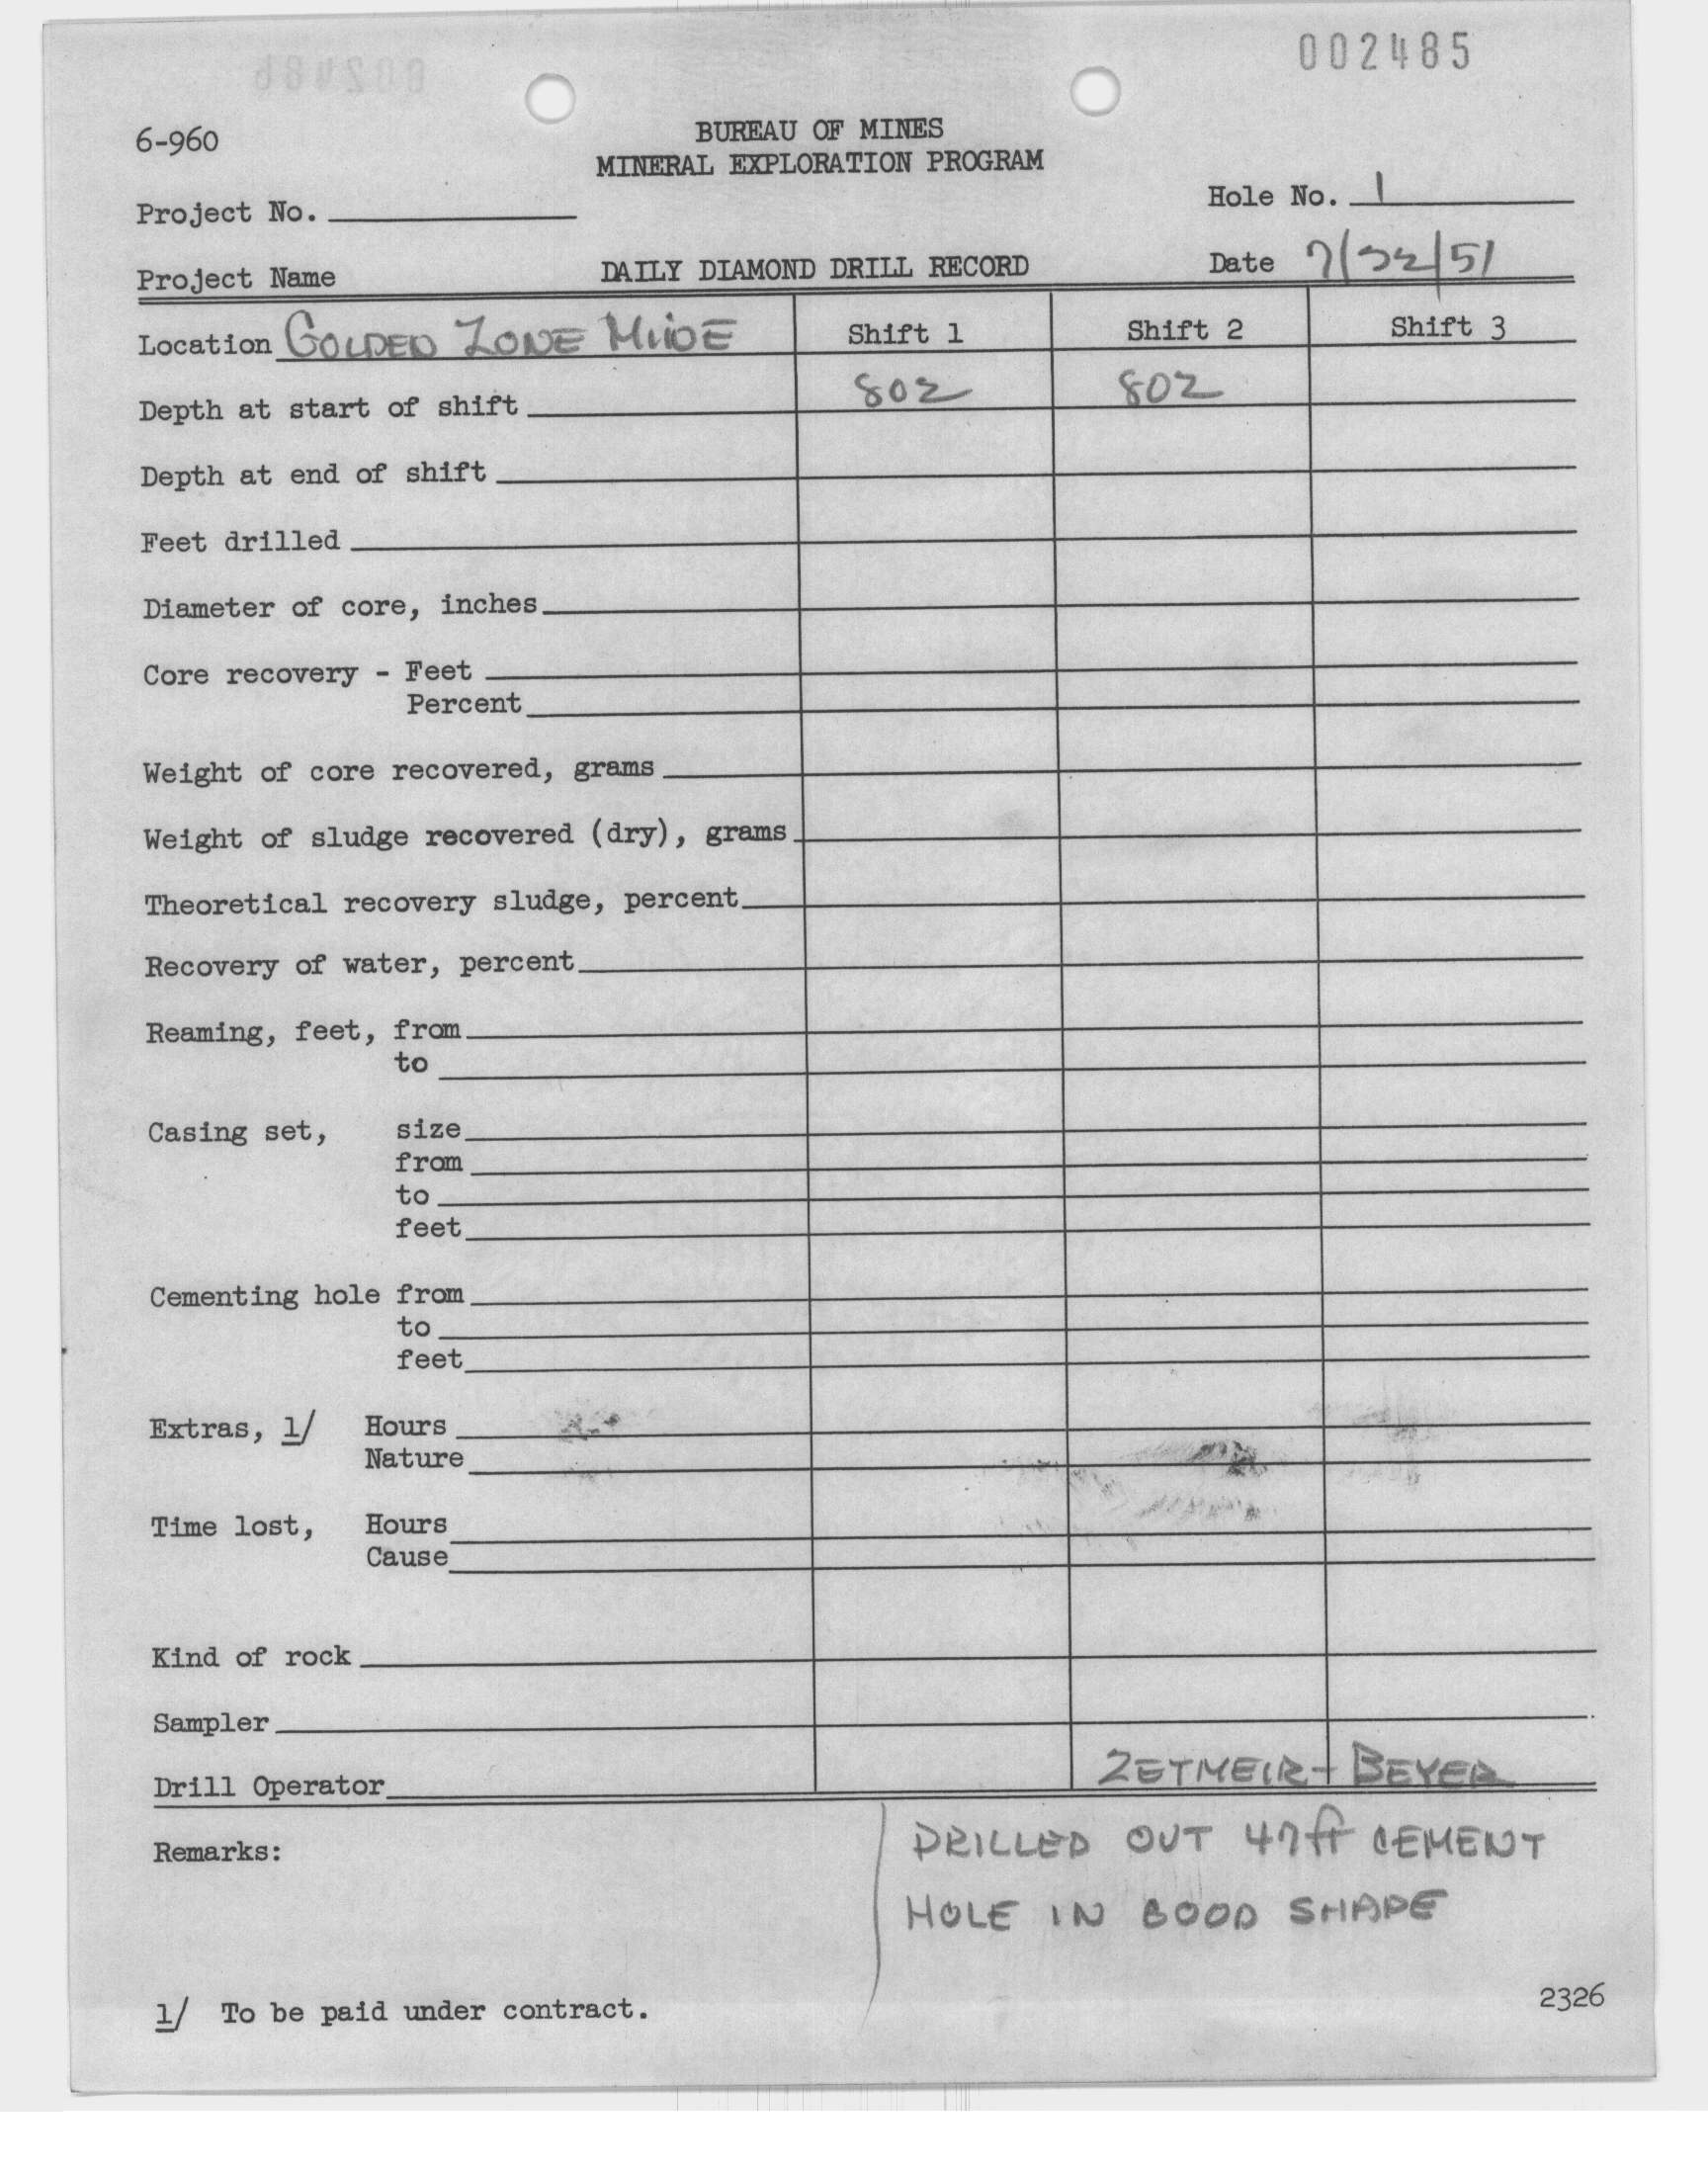 002485
6-960
BUREAU OF MINES
MINERAL EXPLORATION PROGRAM
Hole No. 1
Project No.
Date 7/22/51
Project Name DAILY DIAMOND DRILL RECORD
Location GOLDEN ZONE MINE Shift 1 Shift 2 Shift 3
Depth at start of shift 802 802
Depth at end of shift
Feet drilled
Diameter of core, inches
Core recovery - Feet
Percent
Weight of core recovered, grams
Weight of sludge recovered (dry), grams
Theoretical recovery sludge, percent
Recovery of water, percent
Reaming, feet, from
to
Casing set, size
from
to
feet
Cementing hole from
to
feet
Extras, 1/ Hours
Nature
Time lost, Hours
Cause
Kind of rock
Sampler
Drill Operator ZETMEIR - BEYER
Remarks: DRILLED OUT 47 ft CEMENT
HOLE IN GOOD SHAPE
1/ To be paid under contract.
2326